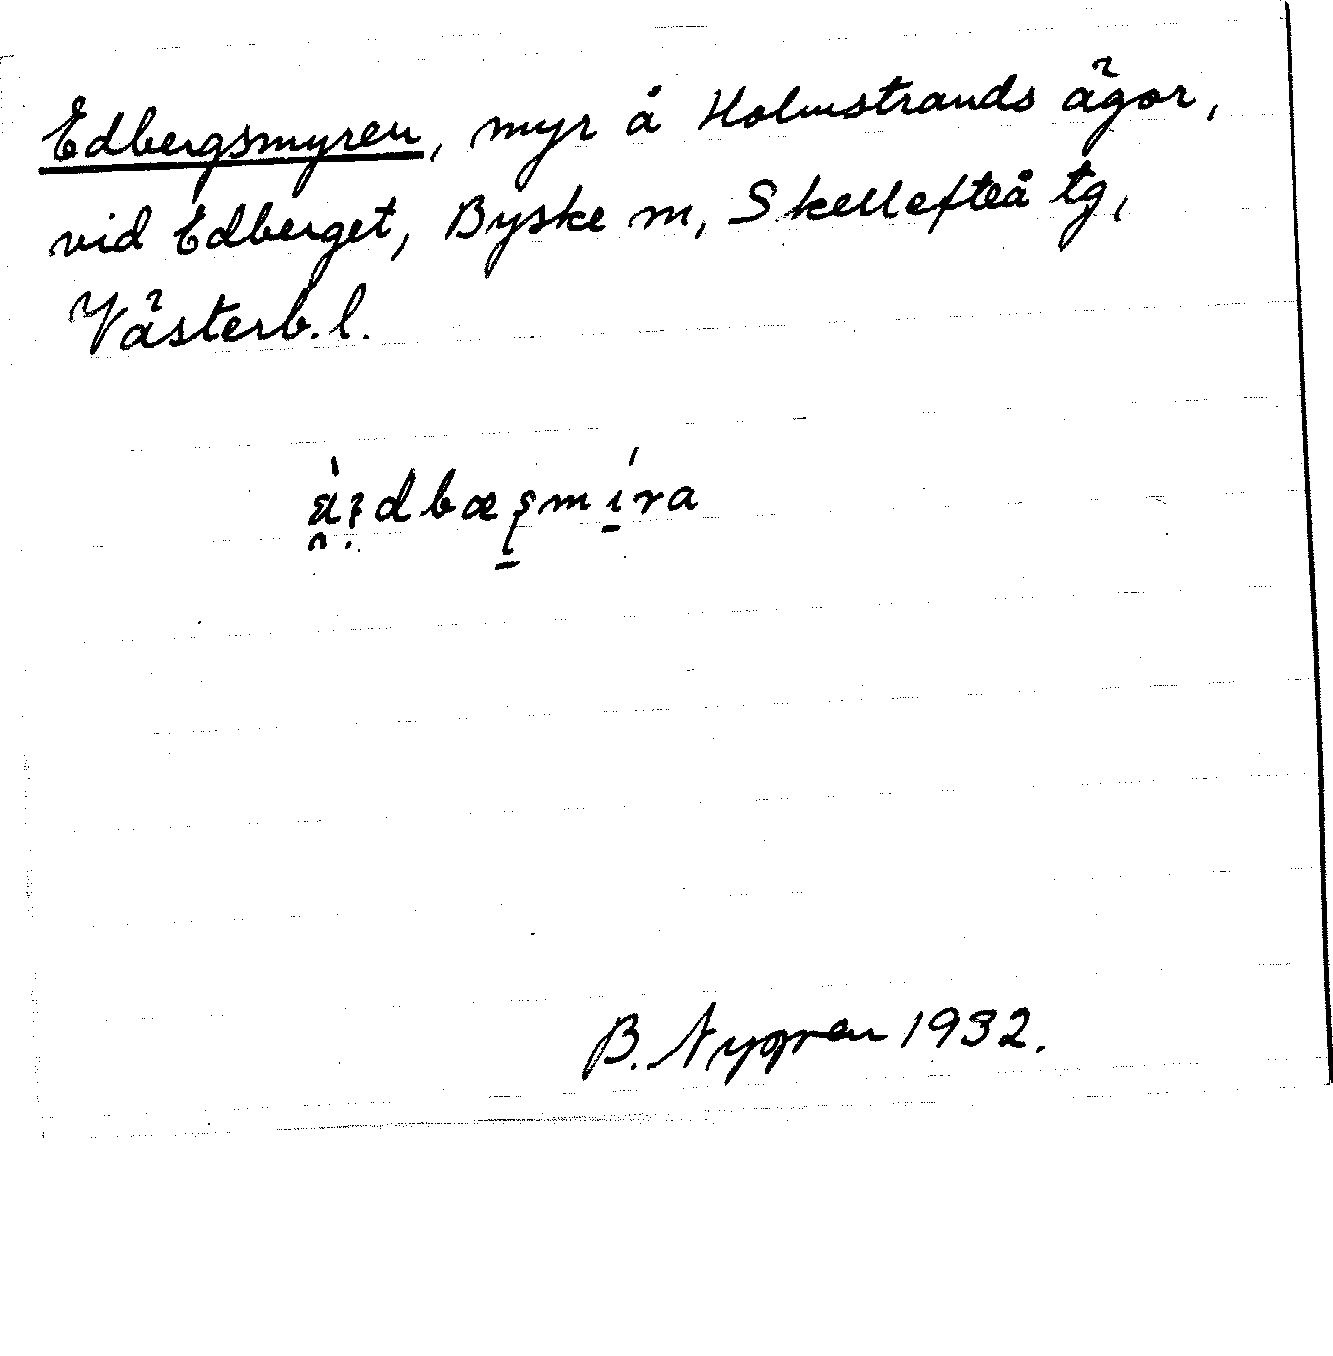 Edbergsmyren, myr å Holmstrands ägor,
vid Edberget, Byske sn, Skellefteå tg,
Västerb. l.
B. Nygren 1932.